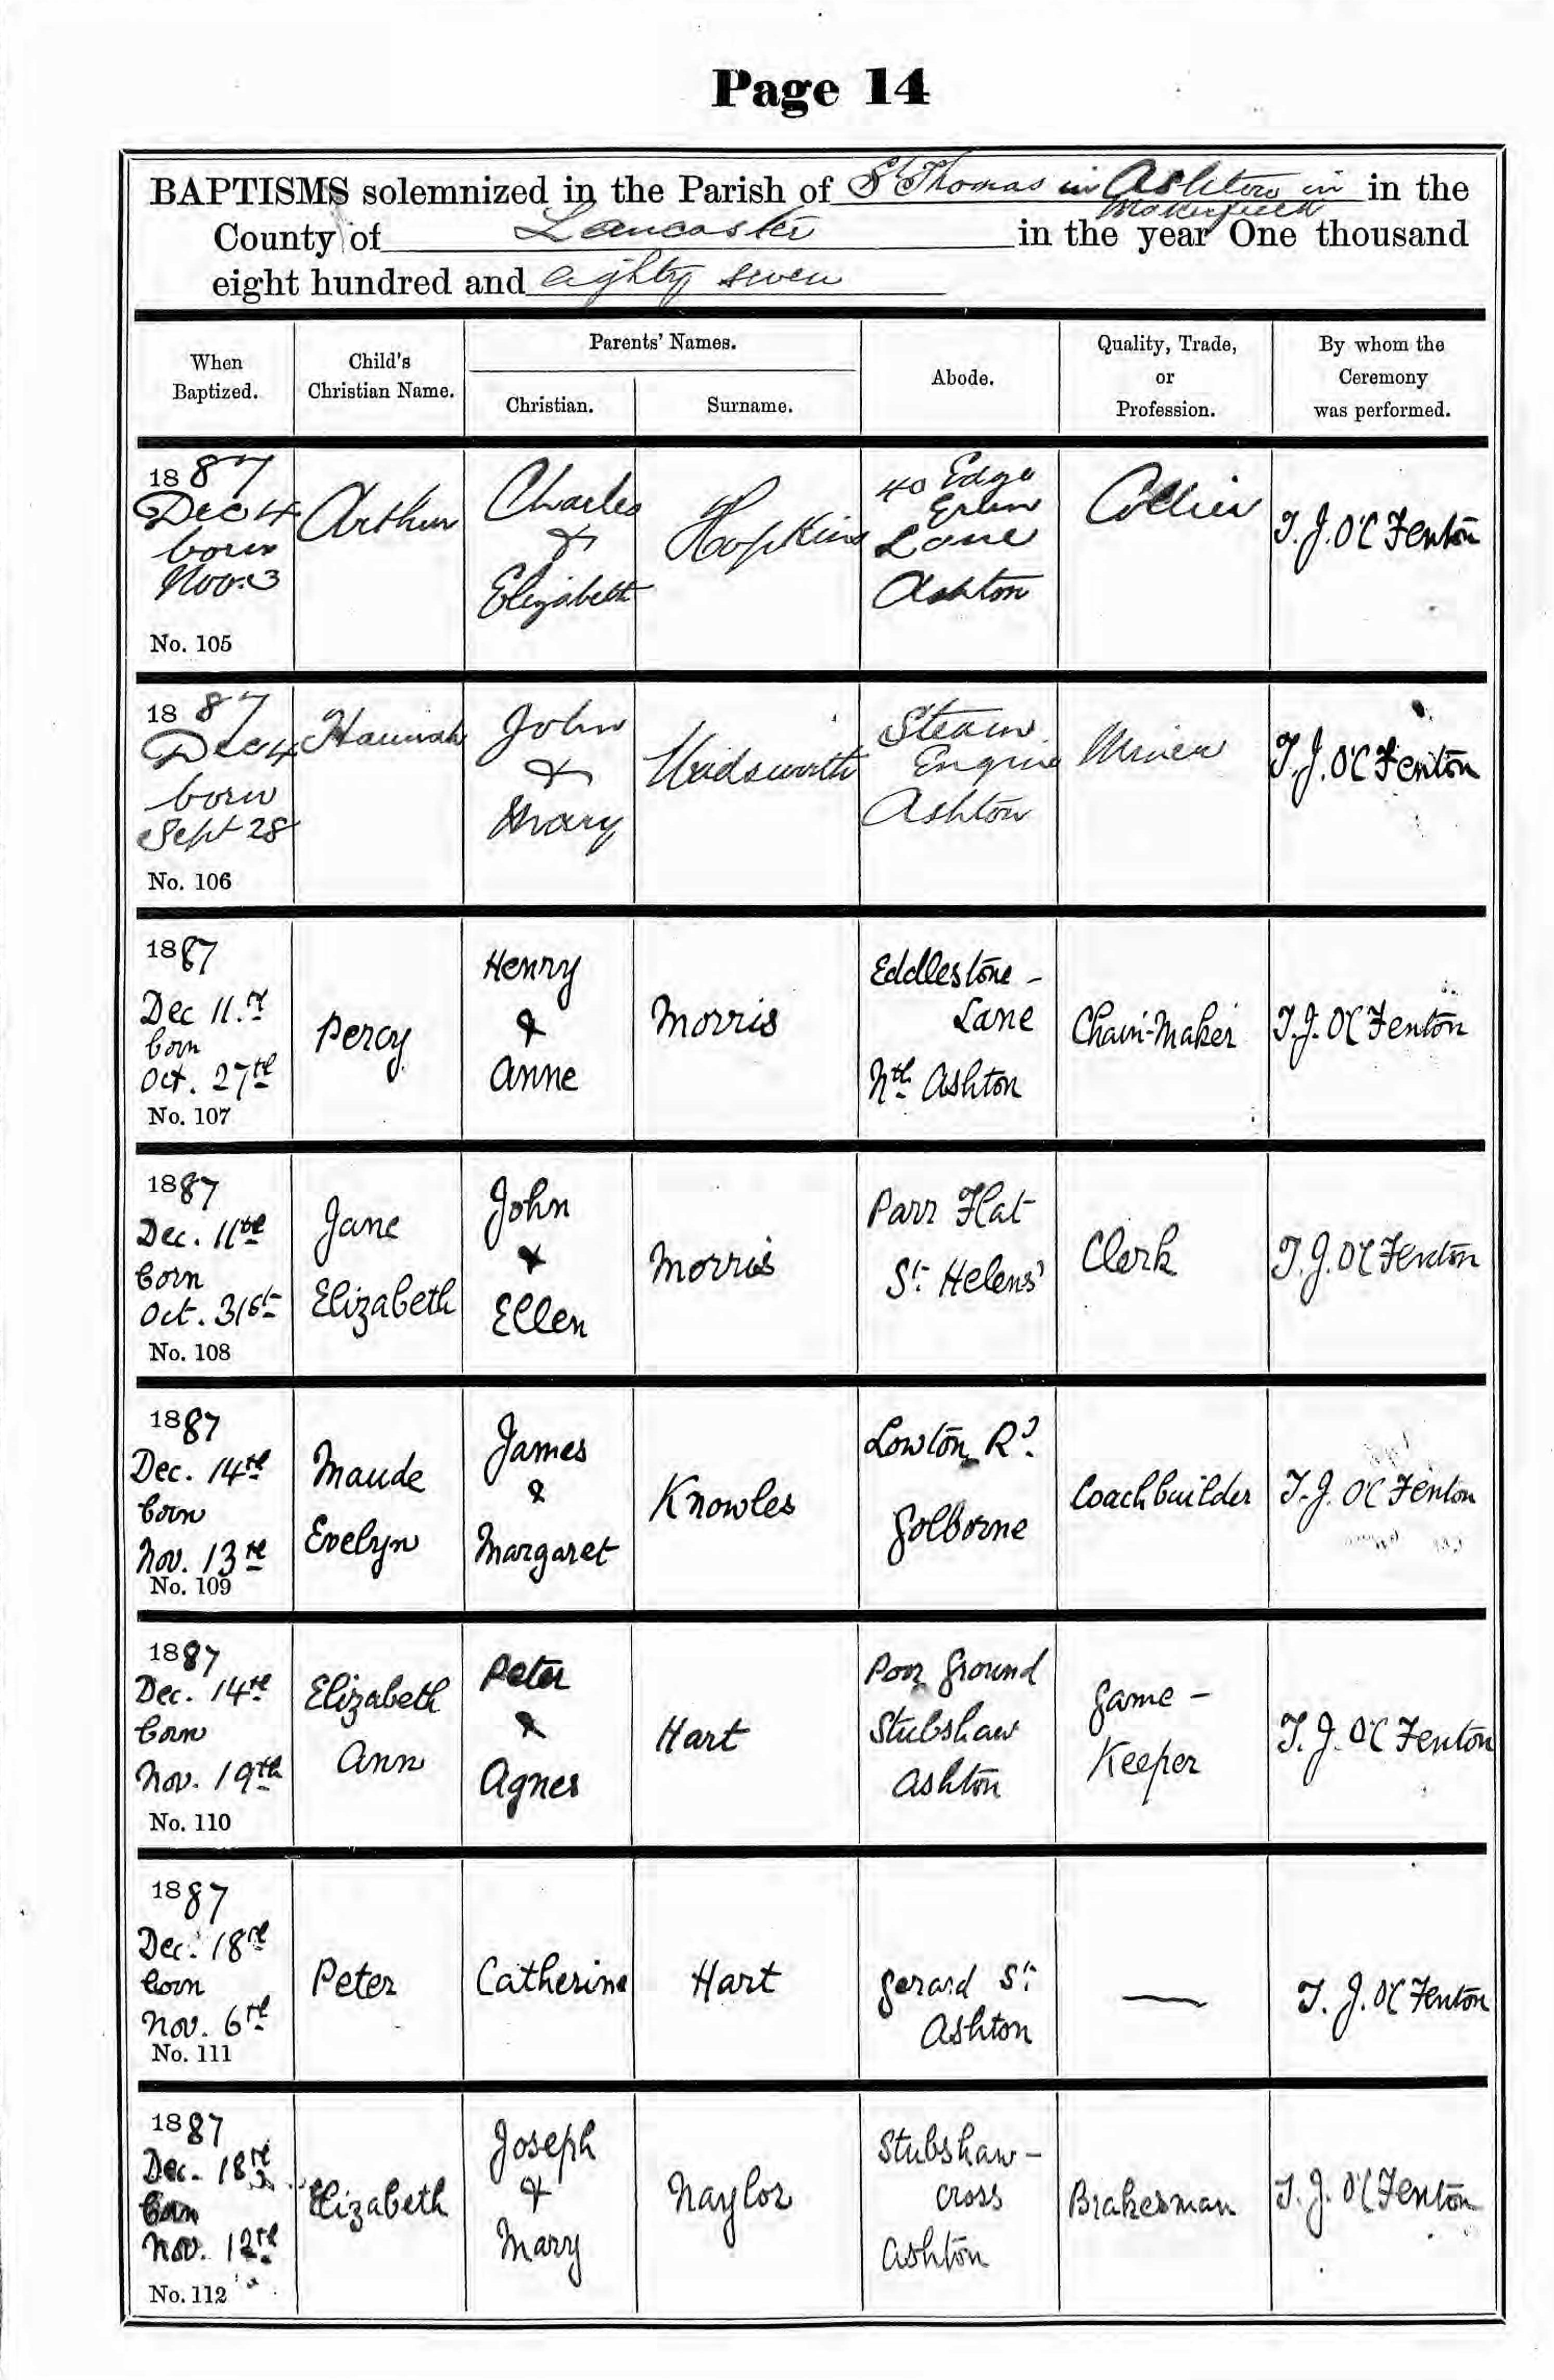 Page 14
BAPTISMS solemnized in the Parish of St Thomas in Ashton in in the
Makerfield
County of Lancaster in the year One thousand
eight hundred and eighty seven
When Baptized.
Child's Christian Name.
Parents' Names.
Christian.
Surname.
Abode.
Quality, Trade, or Profession.
By whom the Ceremony was performed.
1887
Dec 4
born
Nov. 3
No. 105
Arthur
Charles
&
Elizabeth
Hopkins
40 Edge
Green
Lane
Ashton
Collier
T. J. O'C Fenton
1887
Dec 4
born
Sept 28
No. 106
Hannah
John
&
Mary
Wadsworth
Steam
Engine
Ashton
Miner
T. J. O'C Fenton
1887
Dec 11th
born
Oct. 27th
No. 107
Percy
Henry
&
Anne
Morris
Eddlestone -
Lane
Nth Ashton
Chain-Maker
T. J. O'C Fenton
1887
Dec. 11th
born
Oct. 31st
No. 108
Jane
Elizabeth
John
&
Ellen
Morris
Parr Flat
St Helens'
Clerk
T. J. O'C Fenton
1887
Dec. 14th
born
Nov. 13th
No. 109
Maude
Evelyn
James
&
Margaret
Knowles
Lowton Rd.
Golborne
Coachbuilder
T. J. O'C Fenton
1887
Dec. 14th
born
Nov. 19th
No. 110
Elizabeth
Ann
Peter
&
Agnes
Hart
Poor Ground
Stubshaw
Ashton
Game -
Keeper
T. J. O'C Fenton
1887
Dec. 18th
born
Nov. 6th
No. 111
Peter
Catherine
Hart
Gerard St.
Ashton
—
T. J. O'C Fenton
1887
Dec. 18th
born
Nov. 12th
No. 112
Elizabeth
Joseph
&
Mary
Naylor
Stubshaw -
Cross
Ashton
Brakesman
T. J. O'C Fenton